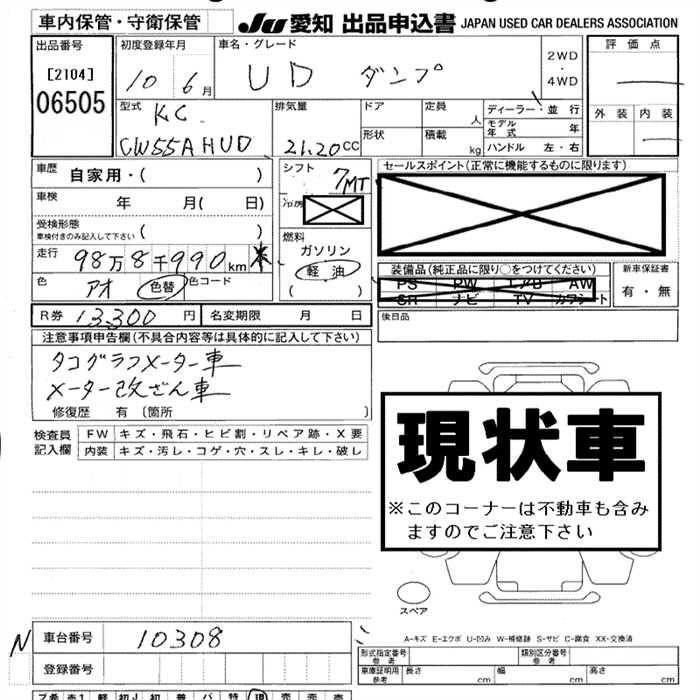 車内保管・守衛保管
JU 愛知 出品申込書 JAPAN USED CAR DEALERS ASSOCIATION
出品番号
[2104]
06505
初度登録年月
10 6月
車名・グレード
UD ダンプ
2WD
・
4WD
評価点
外装 内装
型式
KC-
CW55AHUD
排気量
21.20cc
ドア
形状
定員 人
積載 kg
ディーラー・並行
モデル年式 年
ハンドル 左・右
車歴 自家用・( )
車検 年 月( 日)
受検形態
車検付きのみ記入して下さい ( )
走行 98万8千990km *
色 アオ 色替 色コード
シフト 7MT
燃料
ガソリン
軽油
( )
セールスポイント(正常に機能するものに限ります)
装備品(純正品に限り○をつけてください)
PS PW エアB AW
SR ナビ TV カワシート
新車保証書
有・無
後日品
R券 13,300円 名変期限 月 日
注意事項申告欄(不具合内容等は具体的に記入して下さい)
タコグラフメーター車
メーター改ざん車
修復歴 有〔箇所 〕
検査員記入欄
FW キズ・飛石・ヒビ割・リペア跡・X要
内装 キズ・汚レ・コゲ・穴・スレ・キレ・破レ
現状車
※このコーナーは不動車も含み
ますのでご注意下さい
スペア
A-キズ E-エクボ U-凹み W-補修跡 S-サビ C-腐食 XX-交換済
N 車台番号 10308
登録番号
形式指定番号 参考
類別区分番号 参考
車庫証明用 参考 長さ cm 幅 cm 高さ cm